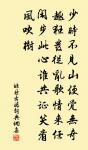 少時不見山便覺無奇
趣狂客從亂歌情來任
閑步此心誰共證笑看
風吹樹